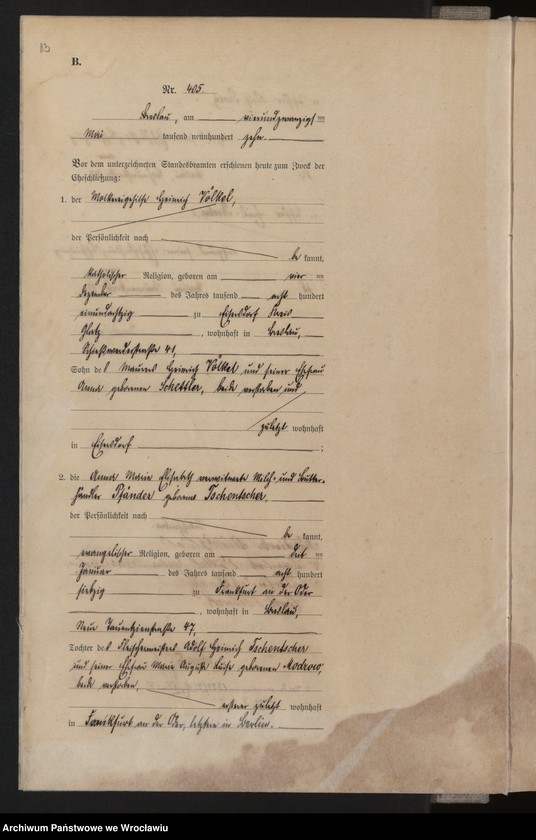 13
B.
Nr. 405.
Breslau, am vierundzwanzigsten
Mai tausend neunhundert zehn.
Vor dem unterzeichneten Standesbeamten erschienen heute zum Zweck der
Eheschließung:
1. der Molkereigehilfe Heinrich Völkel,
der Persönlichkeit nach
be kannt,
katholischer Religion, geboren am vier ten
Dezember des Jahres tausend acht hundert
einundachtzig zu Eisersdorf Kreis
Glatz, wohnhaft in Breslau,
Schießwerderstraße 41,
Sohn des Maurers Heinrich Völkel und seiner Ehefrau
Anna geborenen Schettler, beide verstorben und
zuletzt wohnhaft
in Eisersdorf ;
2. die Anna Marie Elisabeth verwitwete Milch- und Butter-
händler Pfänder geborene Tschentscher,
der Persönlichkeit nach
be kannt,
evangelischer Religion, geboren am ten
Januar des Jahres tausend acht hundert
siebzig zu Frankfurt an der Oder
, wohnhaft in Breslau,
Neue Tauentzienstraße 47,
Tochter des Fleischermeisters Adolf Heinrich Tschentscher
und seiner Ehefrau Marie Auguste Luise geborenen Modrow,
beide verstorben,
ersterer zuletzt wohnhaft
in Frankfurt an der Oder, letztere in Berlin.
Archiwum Państwowe we Wrocławiu